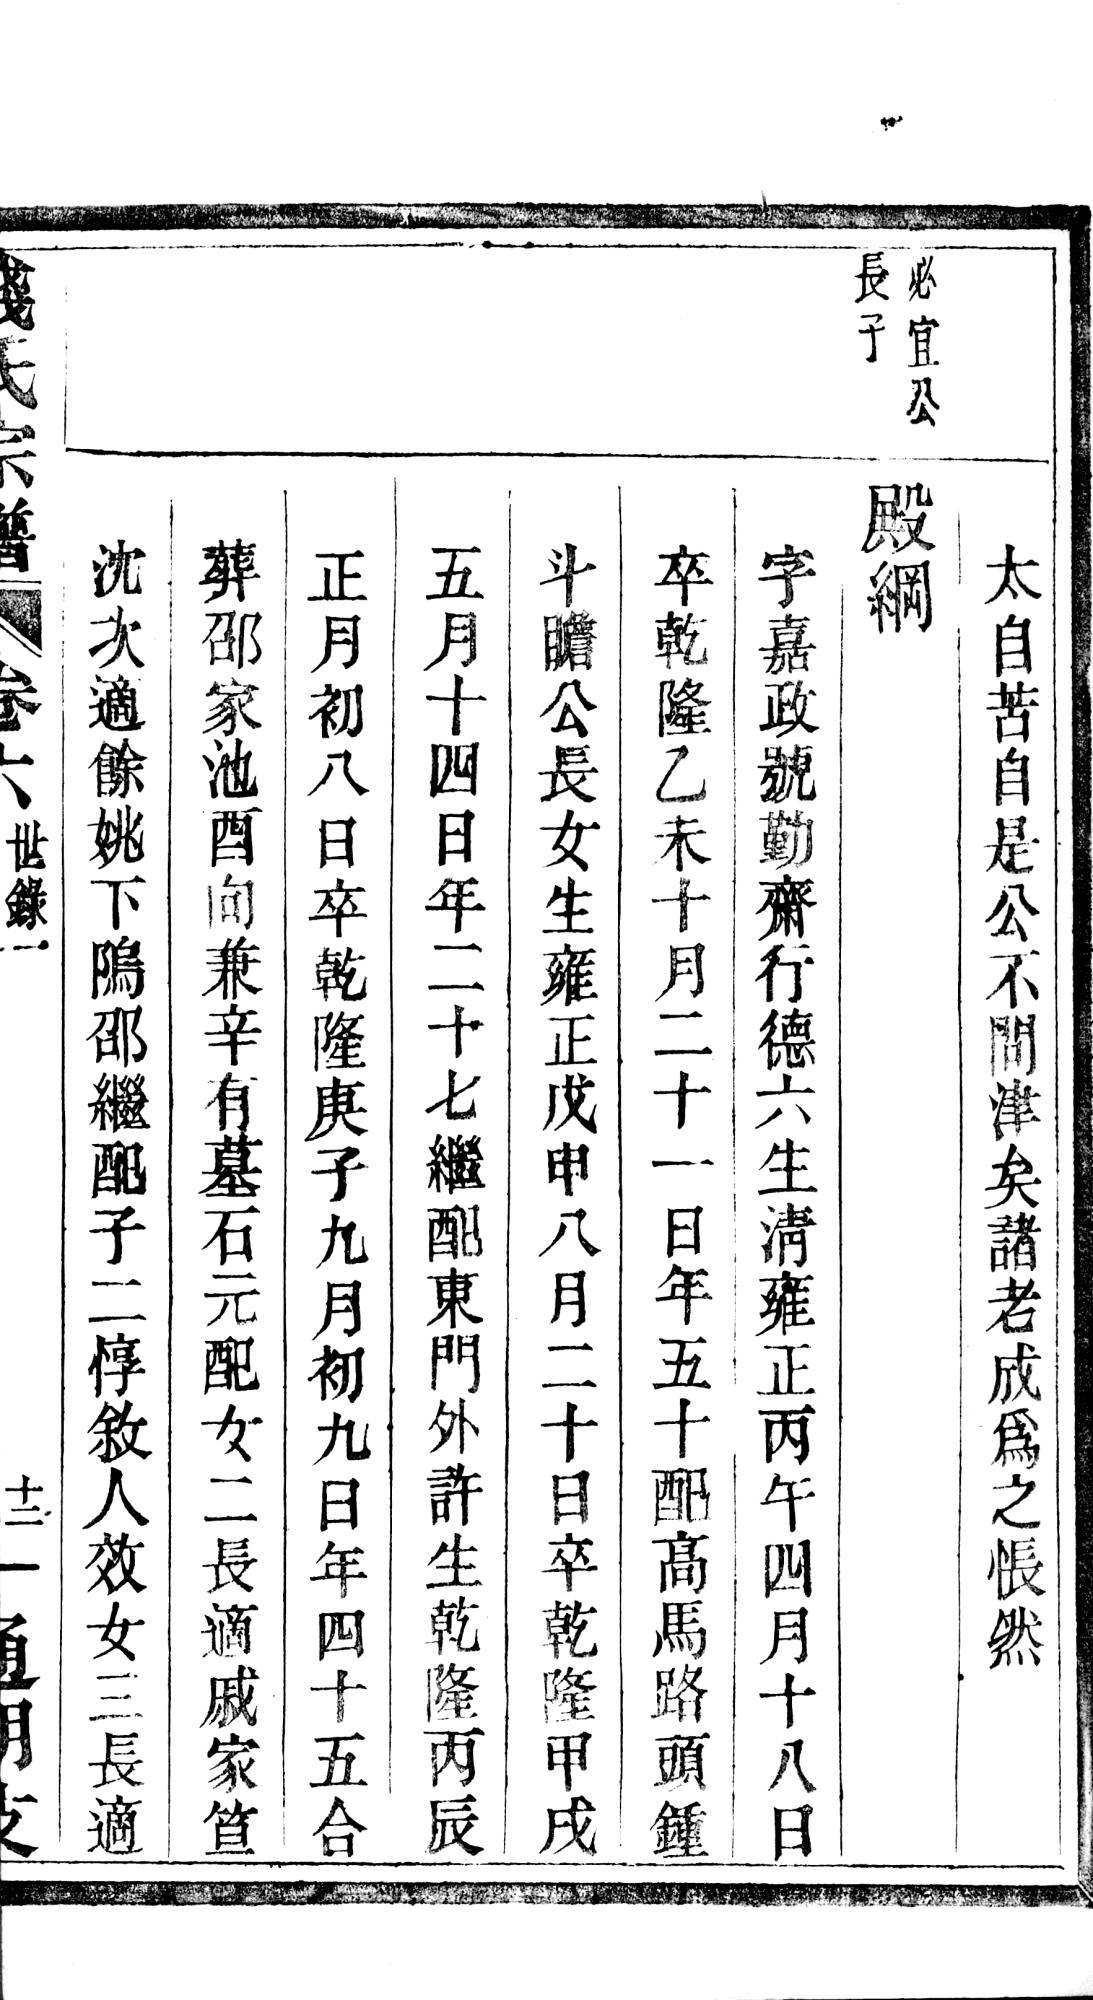 太自苦自是公不問津矣諸老成爲之悵然
必宜公
長子
殿綱
字嘉政號勤齋行德六生淸雍正丙午四月十八日
卒乾隆乙未十月二十一日年五十配高馬路頭鍾
斗瞻公長女生雍正戊申八月二十日卒乾隆甲戌
五月十四日年二十七繼配東門外許生乾隆丙辰
正月初八日卒乾隆庚子九月初九日年四十五合
葬邵家池酉向兼辛有墓石元配女二長適戚家笪
沈次適餘姚下隖邵繼配子二惇敘人效女三長適
錢氏宗譜
卷六
世錄一
十三
通明支